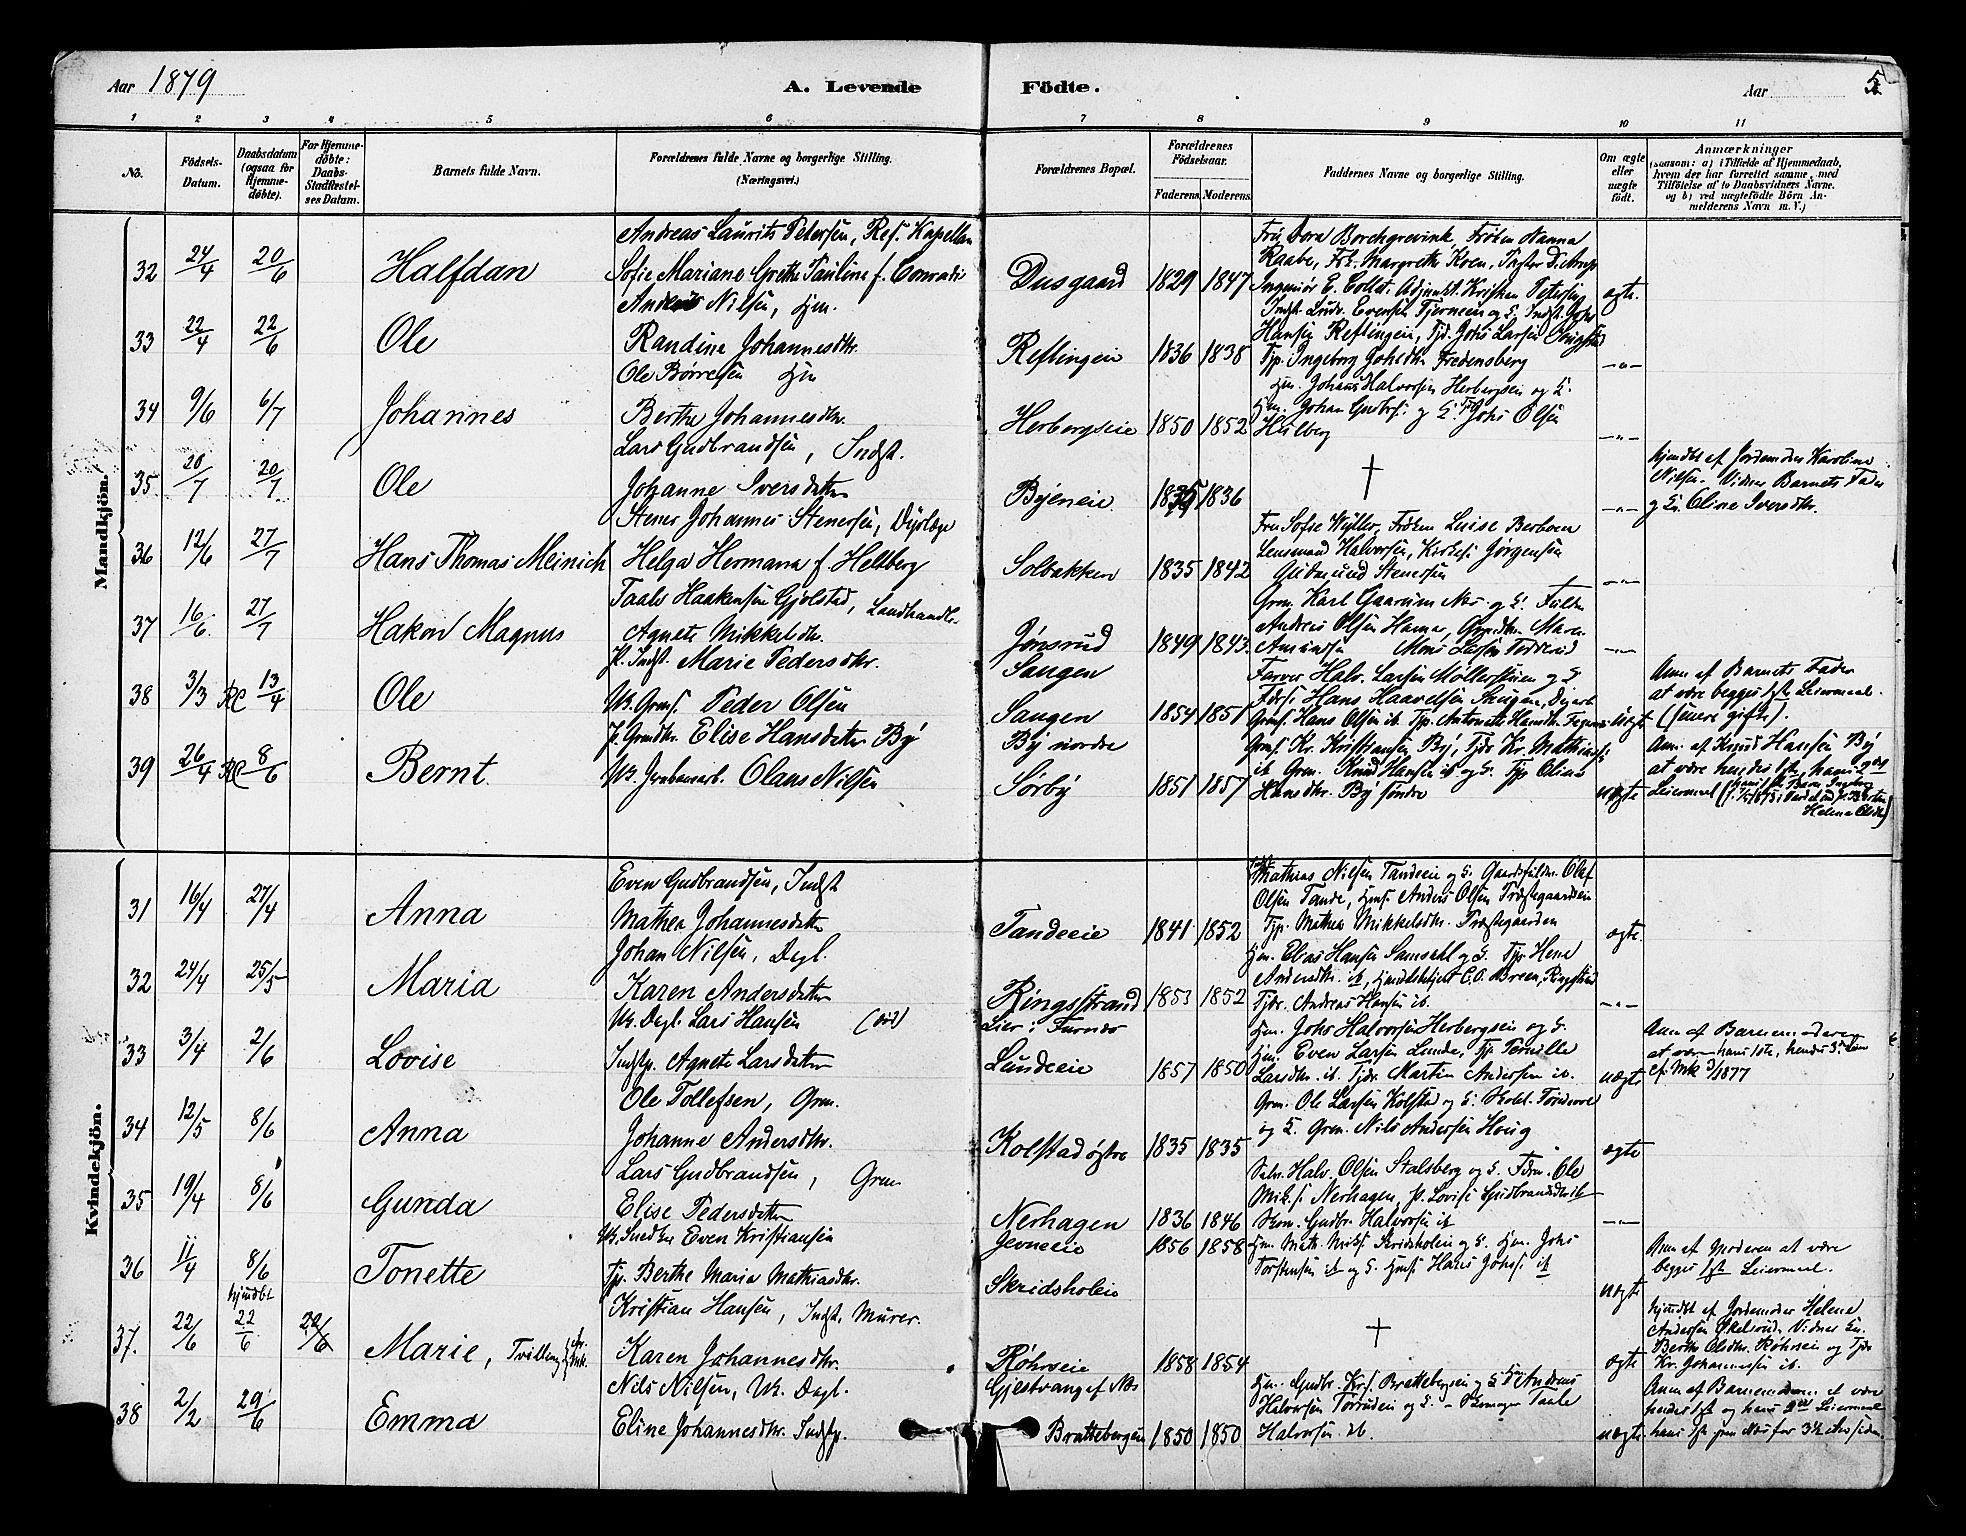 Aar 1879
A. Levende
Födte.
Aar
5
1 2 3 4 5 6 7 8 9 10 11
No.
Födsels-
Datum.
Daabsdatum
(ogsaa for
Hjemme-
döbte).
For Hjemme-
döbte:
Daabs-
Stadfæstel-
ses Datum.
Barnets fulde Navn.
Forældrenes fulde Navne og borgerlige Stilling.
(Næringsvei.)
Forældrenes Bopæl.
Forældrenes
Födselsaar.
Faderens. Moderens.
Faddernes Navne og borgerlige Stilling.
Om ægte
eller
uægte
födt.
Anmærkninger
(saasom: a) i Tilfælde af Hjemmedaab,
hvem der har forrettet samme, med
Tilföielse af to Daabsvidners Navne.
og b) ved uægtefödte Börn An-
melderens Navn m. V.)
Mandkjön.
32 24/4 20/6 Halfdan
Andreas Laurits Petersen, Res. Kapellan
Sofie Mariane Grethe Pauline f. Conradi
Dusgaard 1829 1847
Fru Dora Borchgrevink, Frøken Nanna
Raabe, Frk. Margrethe Koen,
Ingeniør E. Collet, Adjunkt Kristian Petersen
ægte.
33 22/4 22/6 Ole
Anders Nilsen, Hm.
Randine Johannesdtr.
Reflingeie 1836 1838
Hansen Reflingeie, Tjd. Johs Larsen
Tjp. Ingeborg Johsdtr. Fredensberg
-"-
34 9/6 6/7 Johannes
Ole Børresen Hm
Berthe Johannesdtr.
Herbergseie 1850 1852
Hm. Johans Halvorsen Herbergseie og H.
Hm. Johan Gudbr. og H. Tj. Johs Olsen
Hulberg
-"-
35 20/7 20/7 Ole
Lars Gudbrandsen, Indst.
Johanne Iversdatter
Byeneie 1835 1836
†
-"-
hjemdbt af Jordemoder Karoline
Nilsen. Vidner Barnets Fader
og E. Oline Iversdtr.
36 12/6 27/7 Hans Thomas Meinich
Stener Johannes Stenersen, Dyrlæge
Helga Hermana f. Heltberg
Solbakken 1835 1842
Fru Sofie Wyller, Frøken Luise Berboen
Lensmand Halvorsen, Kirkes. Jørgensen
Gudmund Stenersen
-"-
37 16/6 27/7 Hakon Magnus
Taale Haakensen Gjølstad, Landhandler
Agnete Mikkelsdtr.
Jønsrud 1849 1843.
Grm. Karl Gaarum Næs og H.
Andreas Olsen Hamar, Maren
Amundsen
-"-
38 3/3 13/4 Ole
P. Indst. Marie Pedersdtr.
Uk. Grms. Peder Olsen
Saugen
Saugen 1854 1851
Farver Halv. Larsen Møllerstuen og H
Hans Haavelsen Skugen,
Grms. Hans Olsen ib. Tjp. Antonette
Uægte
Anm. af Barnets Fader
at være begges 1ste Leiermaal.
(senere gifte).
39 26/4 8/6 Bernt
P. Grmdtr. Elise Hansdatter By
Uk. Grubearb. Olaus Nilsen
By nordre
Sørby 1851 1857
Grms. Kr. Kristiansen By, Tjdr. Kr. Mathias
ib. Grm. Knud Hansen ib og H. Tjp Oline
Hansdtr. By søndre
uægte
Anm. af Knud Hansen By
at være hendes 1ste, hans 2det
Leiermaal
Kvindekjön.
31 16/4 27/4 Anna
Even Gudbrandsen, Indst
Mathea Johannesdatter
Tandeeie 1841 1852
Mathias Nilsen Tandeeie og H. Olaf
Olsen Tande, Hms. Anders Olsen Præstegaardeie
Tjp. Mathea Mikkelsdtr. Præstegaarden
ægte.
32 24/4 25/5 Maria
Johan Nilsen, Dagl.
Karen Andersdatter
Ringsstrand 1853 1852
Hm. Elias Hansen Samsahl og H. Tjp
Andersdtr. ib, Handelsbetjent C. O. Breen, Ringstrand
Tjdr. Andreas Hansen ib.
-"-
33 3/4 2/6 Lovise
Uk. Dagl. Lars Hansen
Indstp. Agnete Larsdatter
Lier i Furnæs
Lundeeie 1857 1850
Hm. Johs Halvorsen Herbergseie og H.
Hm. Even Larsen Lunde, Tjp. Pernille
Larsdtr. ib. Tjdr. Martin Andersen ib.
uægte
Anm. af Barnemoderen
at være hans 1ste, hendes 3die
1877
34 12/5 8/6 Anna
Ole Tollefsen, Grm.
Johanne Andersdtr.
Kolstad østre 1835 1835
Grm. Ole Larsen Kolstad og H.
og H. Grm. Nils Andersen Houg
ægte
35 19/4 8/6 Gunda
Lars Gudbrandsen, Grm
Elise Pedersdatter
Nerhagen 1836 1846
Halv. Olsen Stalsberg og H. Ole
Nerhagen, P. Lovise Gudbrandsdtr ib
Gudbr. Halvorsen ib
-"-
36 11/4 8/6 Tonette
Uk. Snedker Even Kristiansen
Tjp. Berthe Maria Mathiasdtr.
Jevneeie
Skridsholeie
1856 1858
Hm. Math. Mikk. Skridsholeie og H. Hm. Johs
Torstensen ib og H. Hms. Hans Johs. ib
uægte
Anm. af Moderen at være
begges 1ste Leiermaal.
37. 22/6 hjemdbt 22/6 22/6 Marie, Tvilling
Kristian Hansen, Indst. Murer.
Karen Johannesdtr.
Røhrseie 1858 1854
†
ægte
hjemdbt af Jordemoder Helene
Andersen Økelsrud. Vidner En.
Berthe Olsdtr. Røhrseie og Tjdr
Kr. Johannessen ib.
38 2/2 29/6 Emma
Nils Nilsen, Uk. Dagl.
Eline Johannesdtr. Indstp.
Gjestvang af Næs
Brattebergeie 1850 1850
Hm. Gudbr. Kr. Brattebergeie og H Andreas
Halvorsen Torrudeie og H. Taale
Halvorsen ib.
uægte
Anm af Barnemoderen at være
hendes 1ste og hans 2det Leiermaal
hans 1ste paa Næs for 3½ Aar siden.